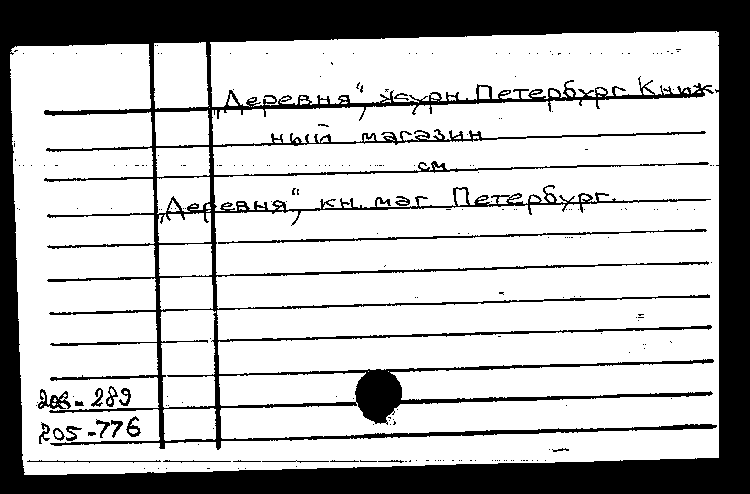 „Деревня“, журн. Петербург. Книж-
ный магазин
см.
„Деревня“, кн. маг. Петербург.
206-289
205-776